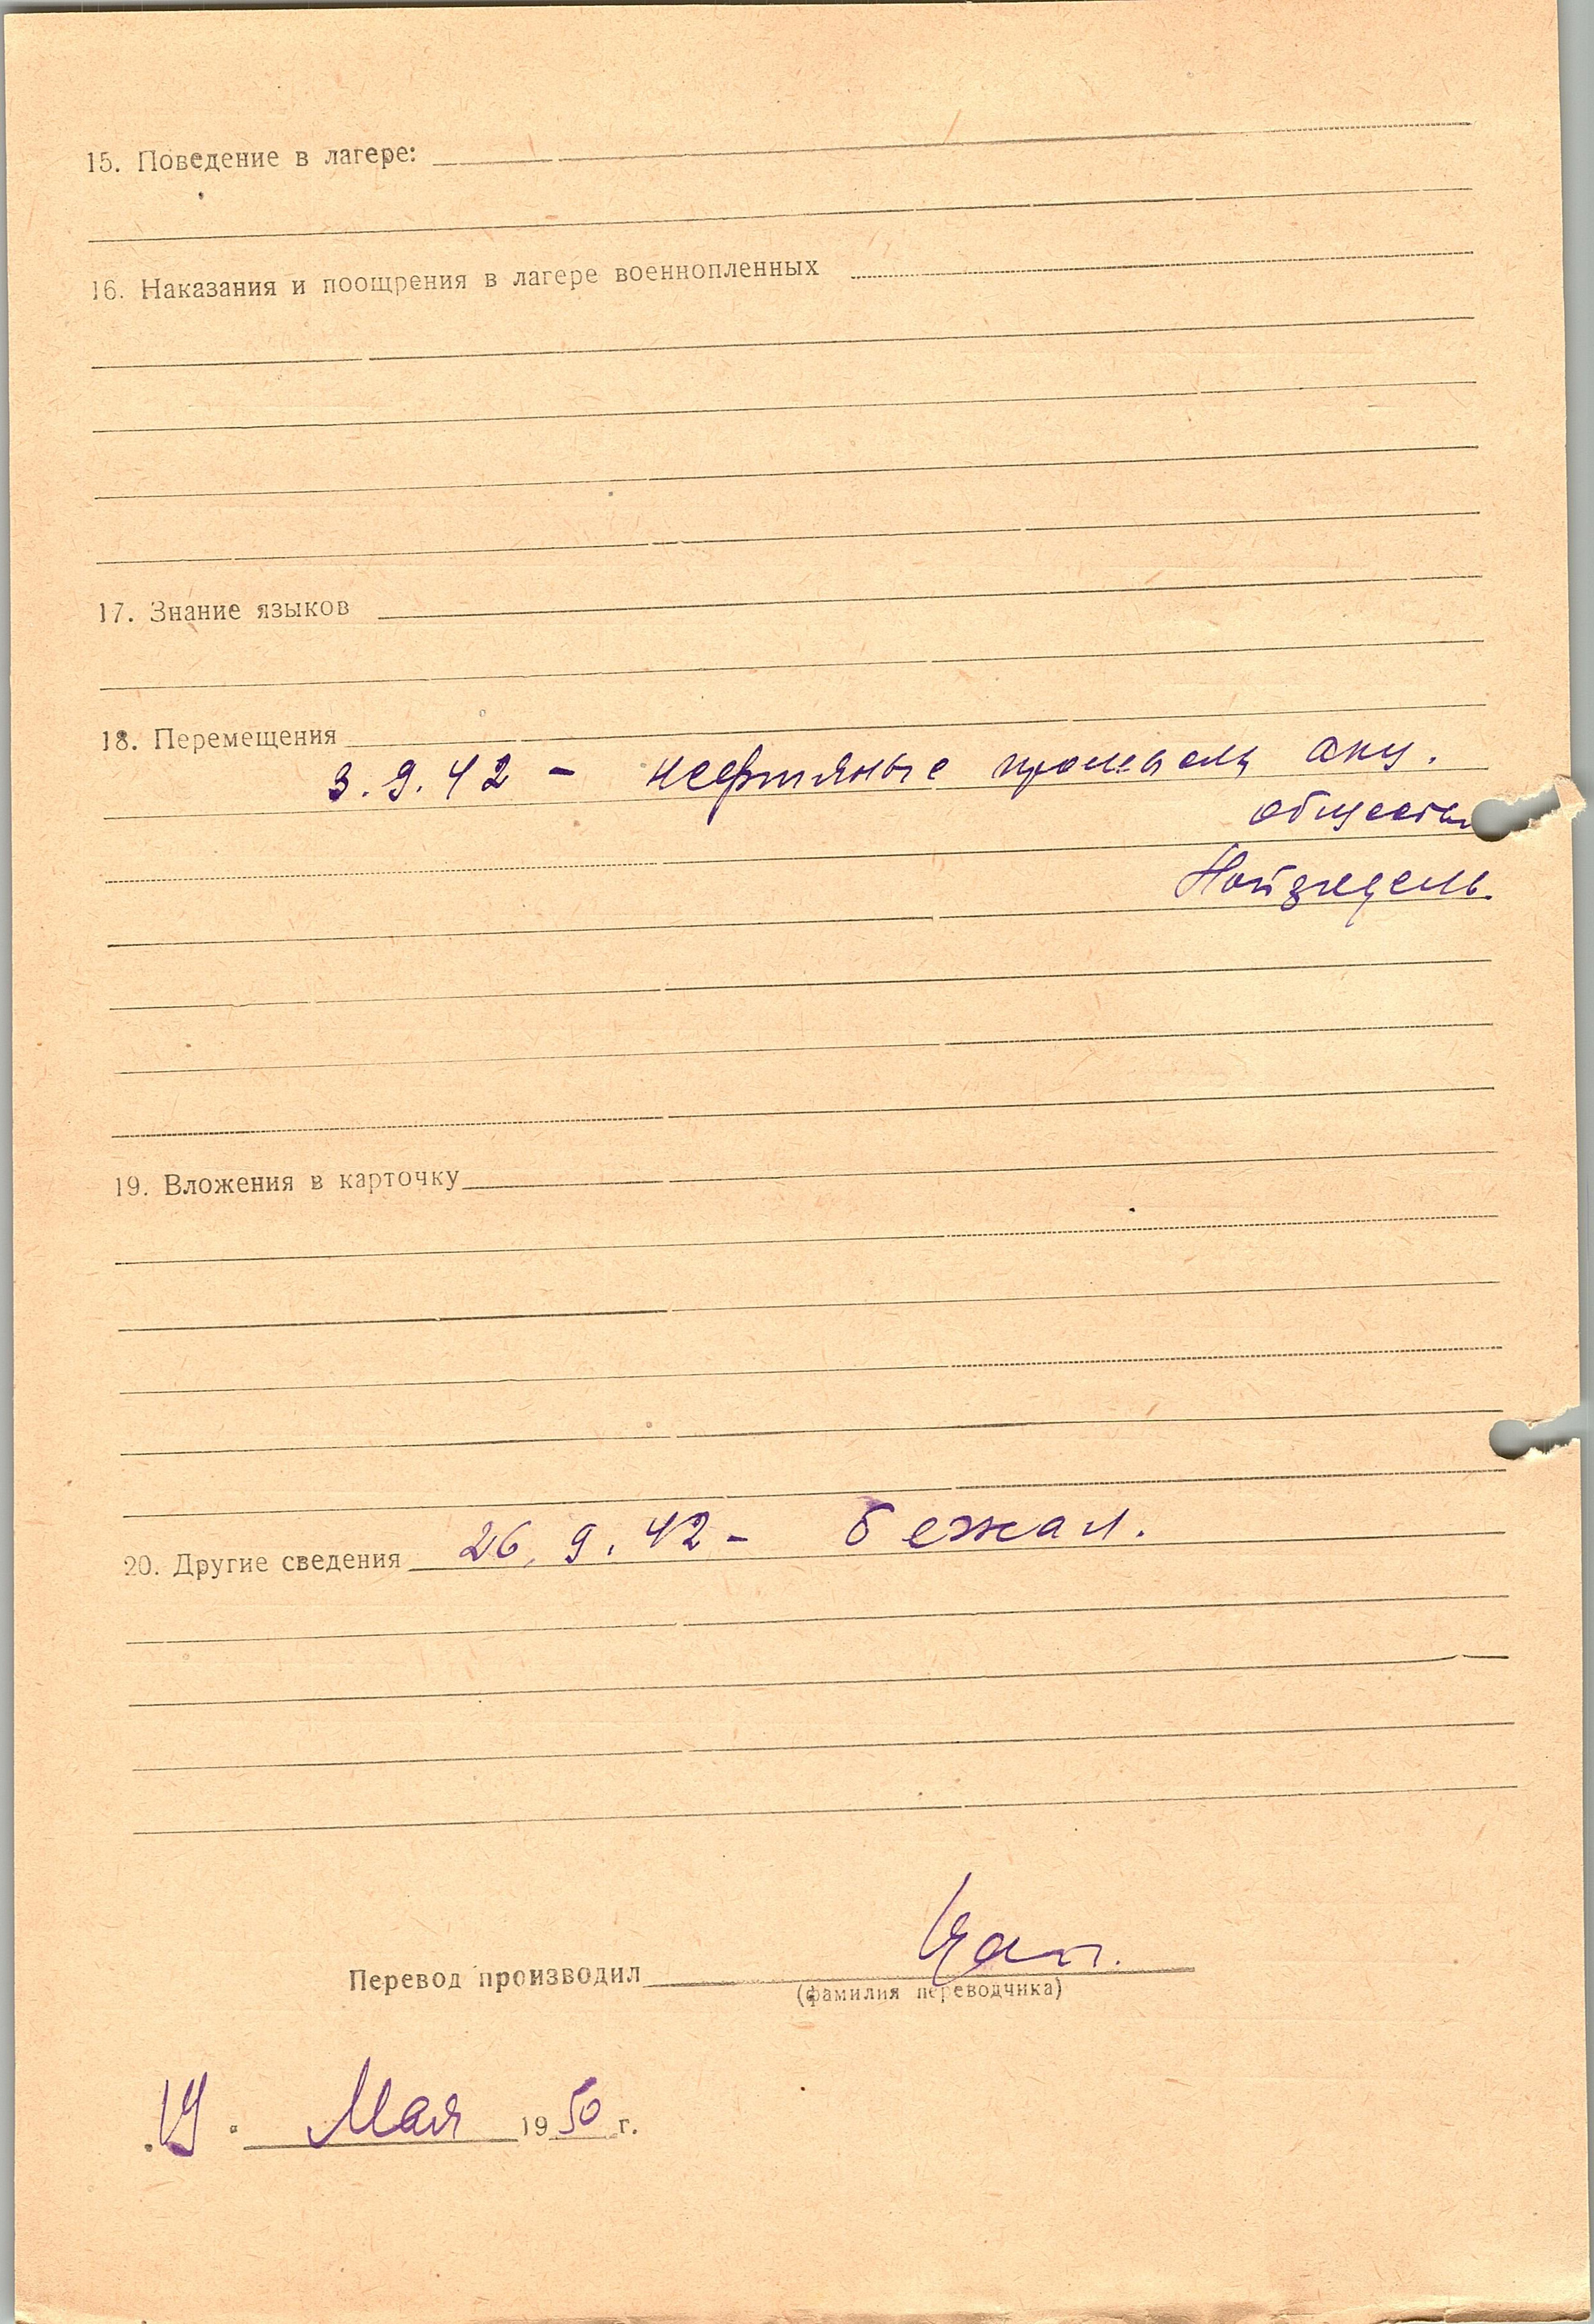 15. Поведение в лагере:
16. Наказания и поощрения в лагере военнопленных
17. Знание языков
18. Перемещения
3.9.42 - нефтяные промыслы акц.
общества
Нойзидель.
19. Вложения в карточку
20. Другие сведения 26.9.42 - бежал.
Перевод производил
(фамилия переводчика)
19. Мая 1950 г.